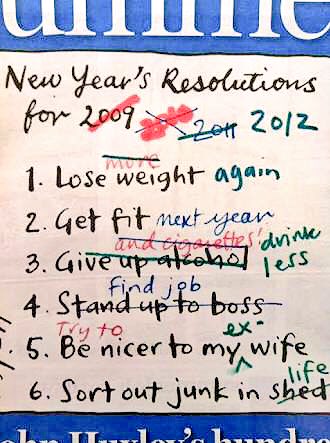 New Year's Resolutions
for 2009 2010 2011 2012
more
1. Lose weight again
2. Get fit next year
and cigarettes! drink
3. Give up alcohol less
find job
4. Stand up to boss
Try to ex-
5. Be nicer to my wife
life
6. Sort out junk in shed
John Huxley's hundred